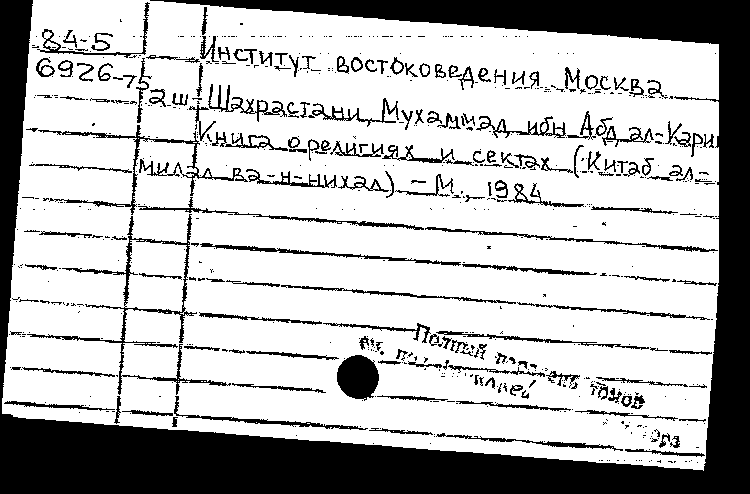 84-5
6926-75
Институт востоковедения. Москва
аш-Шахрастани, Мухаммад ибн Абд ал-Карим
Книга о религиях и сектах (Китаб ал-
милал ва-н-нихал) – М., 1984
Полный перечень томов
см.